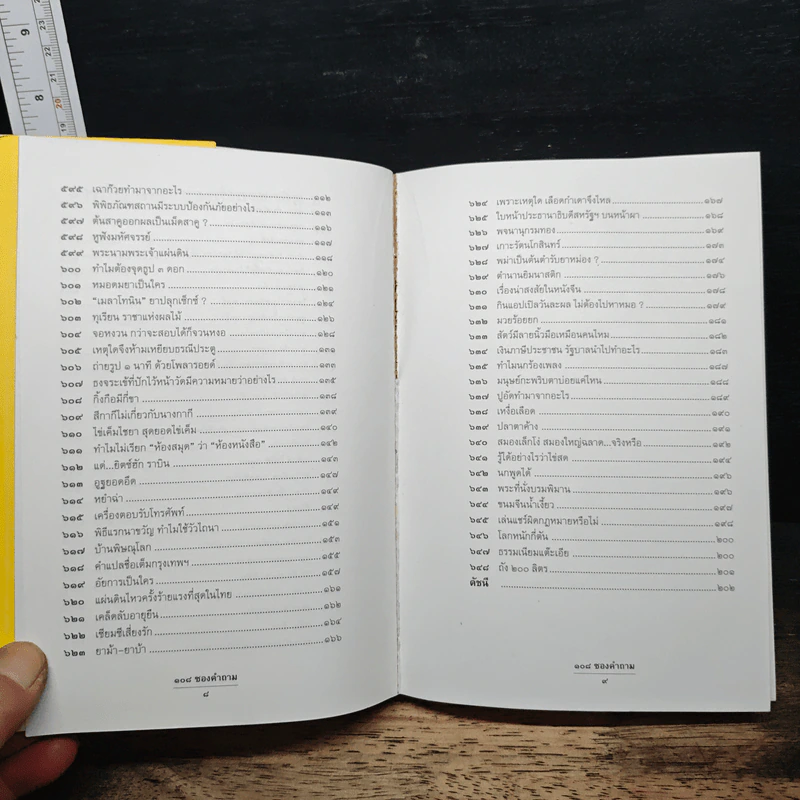 9
8
23
22
21
20
19
๕๙๕ เฉาก๊วยทำมาจากอะไร ๑๑๒
๕๙๖ พิพิธภัณฑสถานมีระบบป้องกันภัยอย่างไร ๑๑๓
๕๙๗ ต้นสาคูออกผลเป็นเม็ดสาคู ? ๑๑๖
๕๙๘ หูฟังมหัศจรรย์ ๑๑๗
๕๙๙ พระนามพระเจ้าแผ่นดิน ๑๑๘
๖๐๐ ทำไมต้องจุดธูป ๓ ดอก ๑๒๐
๖๐๑ หมอดมยาเป็นใคร ๑๒๑
๖๐๒ "เมลาโทนิน" ยาปลุกเซ็กซ์ ? ๑๒๔
๖๐๓ ทุเรียน ราชาแห่งผลไม้ ๑๒๖
๖๐๔ จอหงวน กว่าจะสอบได้ก็จวนหงอ ๑๒๘
๖๐๕ เหตุใดจึงห้ามเหยียบธรณีประตู ๑๓๑
๖๐๖ ถ่ายรูป ๑ นาที ด้วยโพลารอยด์ ๑๓๓
๖๐๗ ธงจระเข้ที่ปักไว้หน้าวัดมีความหมายว่าอย่างไร ๑๓๕
๖๐๘ กิ้งกือมีกี่ขา ๑๓๘
๖๐๙ สีกากีไม่เกี่ยวกับนางกากี ๑๓๙
๖๑๐ ไข่เค็มไชยา สุดยอดไข่เค็ม ๑๔๐
๖๑๑ ทำไมไม่เรียก "ห้องสมุด" ว่า "ห้องหนังสือ" ๑๔๒
๖๑๒ แด่...ยิตซ์ฮัก ราบิน ๑๔๓
๖๑๓ อูฐยอดอึด ๑๔๗
๖๑๔ หยำฉ่า ๑๔๙
๖๑๕ เครื่องตอบรับโทรศัพท์ ๑๔๙
๖๑๖ พิธีแรกนาขวัญ ทำไมใช้วัวไถนา ๑๕๑
๖๑๗ บ้านพิษณุโลก ๑๕๓
๖๑๘ คำแปลชื่อเต็มกรุงเทพฯ ๑๕๕
๖๑๙ อัยการเป็นใคร ๑๕๗
๖๒๐ แผ่นดินไหวครั้งร้ายแรงที่สุดในไทย ๑๖๑
๖๒๑ เคล็ดลับอายุยืน ๑๖๒
๖๒๒ เซียมซีเสี่ยงรัก ๑๖๔
๖๒๓ ยาม้า-ยาบ้า ๑๖๖
๑๐๘ ซองคำถาม
๘
๖๒๔ เพราะเหตุใด เลือดกำเดาจึงไหล ๑๖๗
๖๒๕ ใบหน้าประธานาธิบดีสหรัฐฯ บนหน้าผา ๑๖๘
๖๒๖ พจนานุกรมทอง ๑๖๙
๖๒๗ เกาะรัตนโกสินทร์ ๑๗๓
๖๒๘ พม่าเป็นต้นตำรับยาหม่อง ? ๑๗๕
๖๒๙ ตำนานยิมนาสติก ๑๗๖
๖๓๐ เรื่องน่าสงสัยในหนังจีน ๑๗๘
๖๓๑ กินแอปเปิลวันละผล ไม่ต้องไปหาหมอ ? ๑๗๙
๖๓๒ มวยร้อยยก ๑๘๑
๖๓๓ สัตว์มีลายนิ้วมือเหมือนคนไหม ๑๘๒
๖๓๔ เงินภาษีประชาชน รัฐบาลนำไปทำอะไร ๑๘๓
๖๓๕ ทำไมนกร้องเพลง ๑๘๗
๖๓๖ มนุษย์กะพริบตาบ่อยแค่ไหน ๑๘๘
๖๓๗ ปูอัดทำมาจากอะไร ๑๘๙
๖๓๘ เหงื่อเลือด ๑๙๐
๖๓๙ ปลาตาค้าง ๑๙๑
๖๔๐ สมองเล็กโง่ สมองใหญ่ฉลาด...จริงหรือ ๑๙๒
๖๔๑ รู้ได้อย่างไรว่าไข่สด ๑๙๔
๖๔๒ นกพูดได้ ๑๙๖
๖๔๓ พระที่นั่งบรมพิมาน ๑๙๖
๖๔๔ ขนมจีนน้ำเงี้ยว ๑๙๗
๖๔๕ เล่นแชร์ผิดกฎหมายหรือไม่ ๑๙๘
๖๔๖ โลกหนักกี่ตัน ๒๐๐
๖๔๗ ธรรมเนียมแต๊ะเอีย ๒๐๐
๖๔๘ ถัง ๒๐๐ ลิตร ๒๐๑
ดัชนี ๒๐๒
๑๐๘ ซองคำถาม
๙